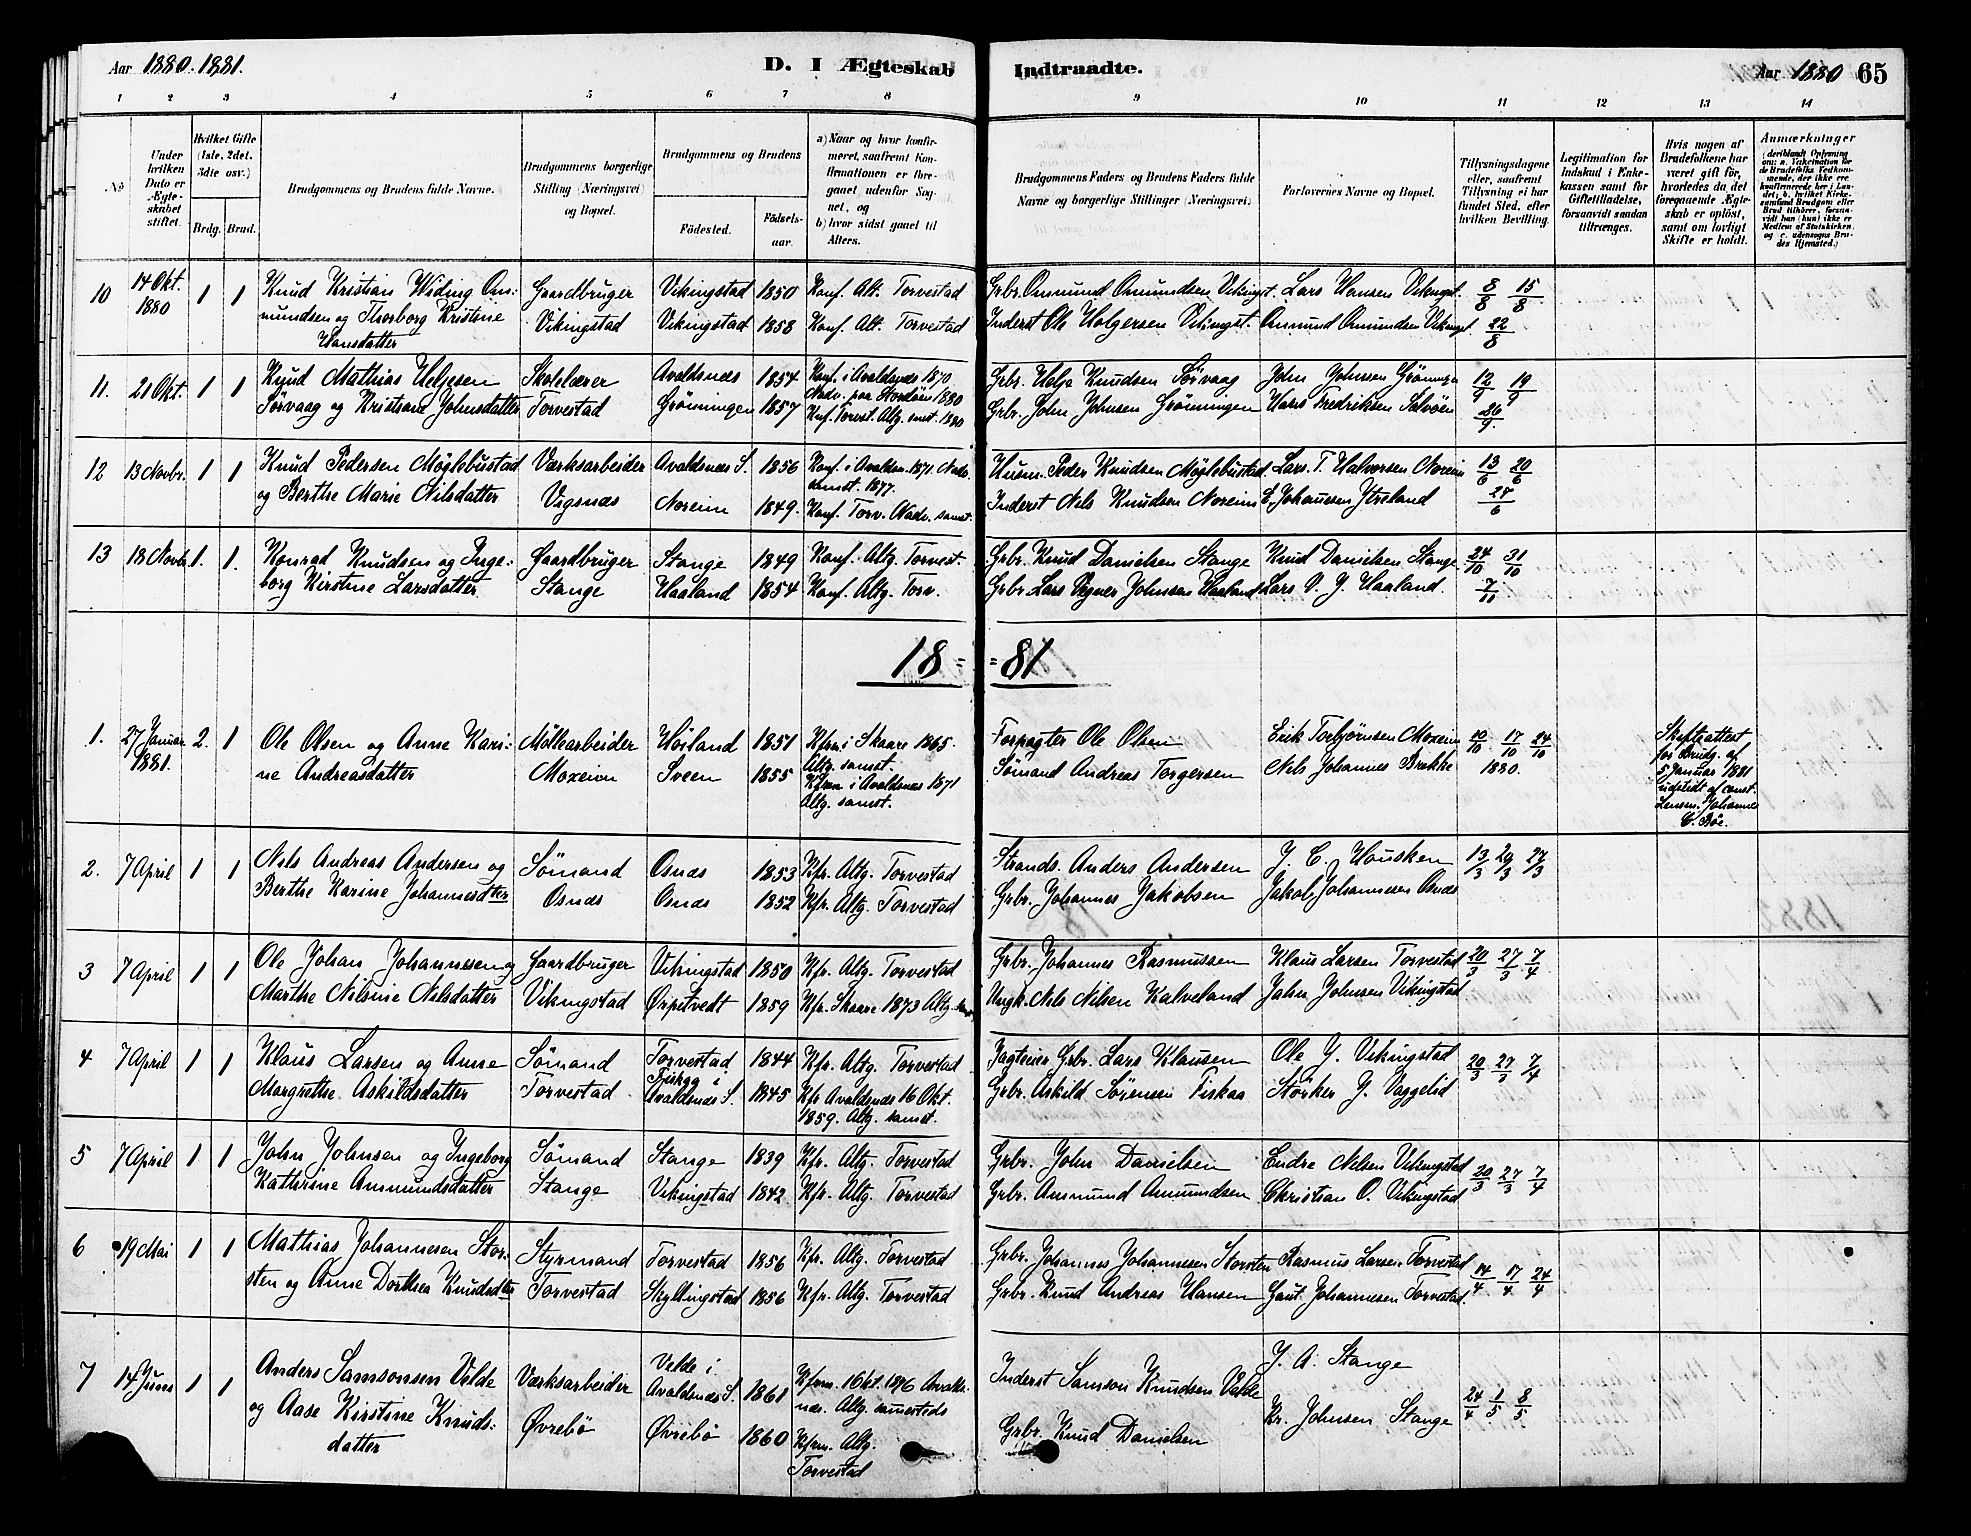 Aar 1880. 1881.
D. I Ægteskab Indtraadte.
Aar 1880 65
1 2 3 4 5 6 7 8 9 10 11 12 13 14
№
Under hvilken Dato er Ægteskabet stiftet.
Hvilket Gifte (1ste, 2det, 3die osv.)
Brdg. Brud.
Brudgommens og Brudens fulde Navne.
Brudgommens borgerlige Stilling (Næringsvei) og Bopæl.
Brudgommens og Brudens
Fødested.
Fødselsaar.
a) Naar og hvor konfirmeret, saafremt Konfirmationen er foregaaet udenfor Sognet, og
b) hvor sidst gaaet til Alters.
Brudgommens Faders og Brudens Faders fulde Navne og borgerlige Stillinger (Næringsvei)
Forlovernes Navne og Bopæl.
Tillysningsdagene eller, saafremt Tillysning ei har fundet Sted, efter hvilken Bevilling.
Legitimation for Indskud i Enkekassen samt for Giftetilladelse, forsaavidt saadan tiltrænges.
Hvis nogen af Brudefolkene har været gift før, hvorledes da det foregaaende Ægteskab er opløst, samt om lovligt Skifte er holdt.
Anmærkninger
10 14 Okt. 1880 1 1 Knud Kristian Widing Ommundsen og Thorborg Kristine Hansdatter
Gaardbruger Vikingstad
Vikingstad 1850 Konf. Alt. Torvestad
Vikingstad 1858 Konf. Alt. Torvestad
Grbr. Ommund Omundsen Vikingst. Lars Hansen Vikingst. 8/8 15/8
Inderst Ole Holgersen Vikingst. Omund Omundsen Vikingst. 22/8
11. 21 Okt. 1 1 Knud Mathias Helgesen Sørvaag og Kristiane Johnsdatter
Skolelærer Torvestad
Avaldsnæs 1854 Konf. i Avaldsnæs 1870 Nadv. paa Stordøen 1880
Grønningen 1857 Knf. Torvest. Altg. smst. 1880
Grbr. Helge Knudsen Sørvaag John Johnsen Grønningen 12/9 19/9
Grbr. John Johnsen Grønningen Hans Fredriksen Salvøen 26/9
12 13 Novbr. 1 1 Knud Pedersen Møglebustad og Berthe Marie Nilsdatter
Værksarbeider Vigsnæs
Avaldsnæs S. 1856 Konf. i Avaldsn. 1871. Nadv. samst. 1877.
Noreim 1849. Konf. Torv. Nadv. samst.
Husm. Peder Knudsen Møglebustad Lars T. Halvorsen Noreim 13/6 20/6
Inderst Nils Knudsen Noreim E. Johannesen Ytreland 27/6
13 18 Novb. 1. 1. Konrad Knudsen og Ingeborg Kirstine Larsdatter
Gaardbruger Stange
Stange 1849 Konf. Altg. Torvest.
Haaland 1854 Konf. Altg. Torv.
Grbr. Knud Danielsen Stange Knud Danielsen Stange 24/10 31/10
Grbr. Lars Vegner Johnsen Haaland Lars V. J. Haaland. 7/11
18 = = 81
1. 27 Januar 1881. 2. 1 Ole Olsen og Anne Karine Andreasdatter
Møllearbeider Moxeim
Høiland 1851 Kfrm. i Skaare 1865. Altg. samst.
Sveen 1855 Kfrm i Avaldsnæs 1871 Altg. samst.
Forpagter Ole Olsen Erik Torbjørnsen Moxeim 10/10 17/10 24/10
Sømand Andreas Torgersen Nils Johannes Brække 1880.
Skifteattest for Brudg. af 5 Januar 1881 udstedt af const. Lensm. Johannes C. Bøe.
2. 7 April 1 1 Nils Andreas Andersen og Berthe Karine Johannesdtter
Sømand Osnæs
Osnæs 1853 Kfr. Altg. Torvestad
Osnæs 1852 Kfr. Altg. Torvestad
Strands. Anders Andersen J. C. Hausken 13/3 20/3 27/3
Grbr. Johannes Jakobsen Jakob Johannesen Osnæs
3 7 April 1 1 Ole Johan Johannesen og Marthe Nilsine Nilsdatter
Gaardbruger Vikingstad
Vikingstad 1850 Kfr. Altg. Torvestad
Ørpetvedt 1859 Kfr. Skaare 1873 Altg. smst
Grbr. Johannes Rasmussen Klaus Larsen Torvestad 20/3 27/3 7/4
Ungk. Nils Nilsen Kalveland John Johnsen Vikingstad
4 7 April 1 1 Klaus Larsen og Anne Margrethe Askildsdatter
Sømand Torvestad
Torvestad 1844 Kfr. Altg. Torvestad
Fiskaa i Avaldsnæs S. 1845 Kfr Avaldsnæs 16 Okt. 1859. Altg. samst.
Jagteier Grbr. Lars Klausen Ole J. Vikingstad 20/3 27/3 7/4
Grbr. Askild Sørensen Fiskaa Størker J. Vaggelid
5 7 April 1 1 John Johnsen og Ingeborg Kathrine Ommundsdatter
Sømand Stange
Stange 1839 Kfr. Altg. Torvestad
Vikingstad 1842 Kfr. Altg. Torvestad
Grbr. John Danielsen Endre Nilsen Vikingstad 20/3 27/3 7/4
Grbr. Ommund Omundsen Christian O. Vikingstad
6 19 Mai 1 1 Mathias Johannesen Storsten og Anne Dorthea Knudsdtter
Styrmand Torvestad
Torvestad 1856 Kfr. Altg. Torvestad
Skyllingstad 1856 Kfr. Altg. Torvestad
Grbr. Johannes Johannesen Storsten Rasmus Larsen Torvestad 14/4 17/4 24/4
Grbr. Knud Andreas Hansen Gaut Johannesen Torvestad.
7 14 Juni 1 1 Anders Samsonsen Velde og Aase Kirstine Knudsdatter
Værksarbeider Øvrebø
Velde i Avaldsnæs S. 1861 Kfrm. 1 Okt. 1876 Avaldsnæs. Altg. sammesteds
Øvrebø 1860 Kfrm. Altg. Torvestad
Inderst Samson Knudsen Velde J. A. Stange 24/4 1/5 8/5
Grbr. Knud Danielsen Kr. Johnsen Stange